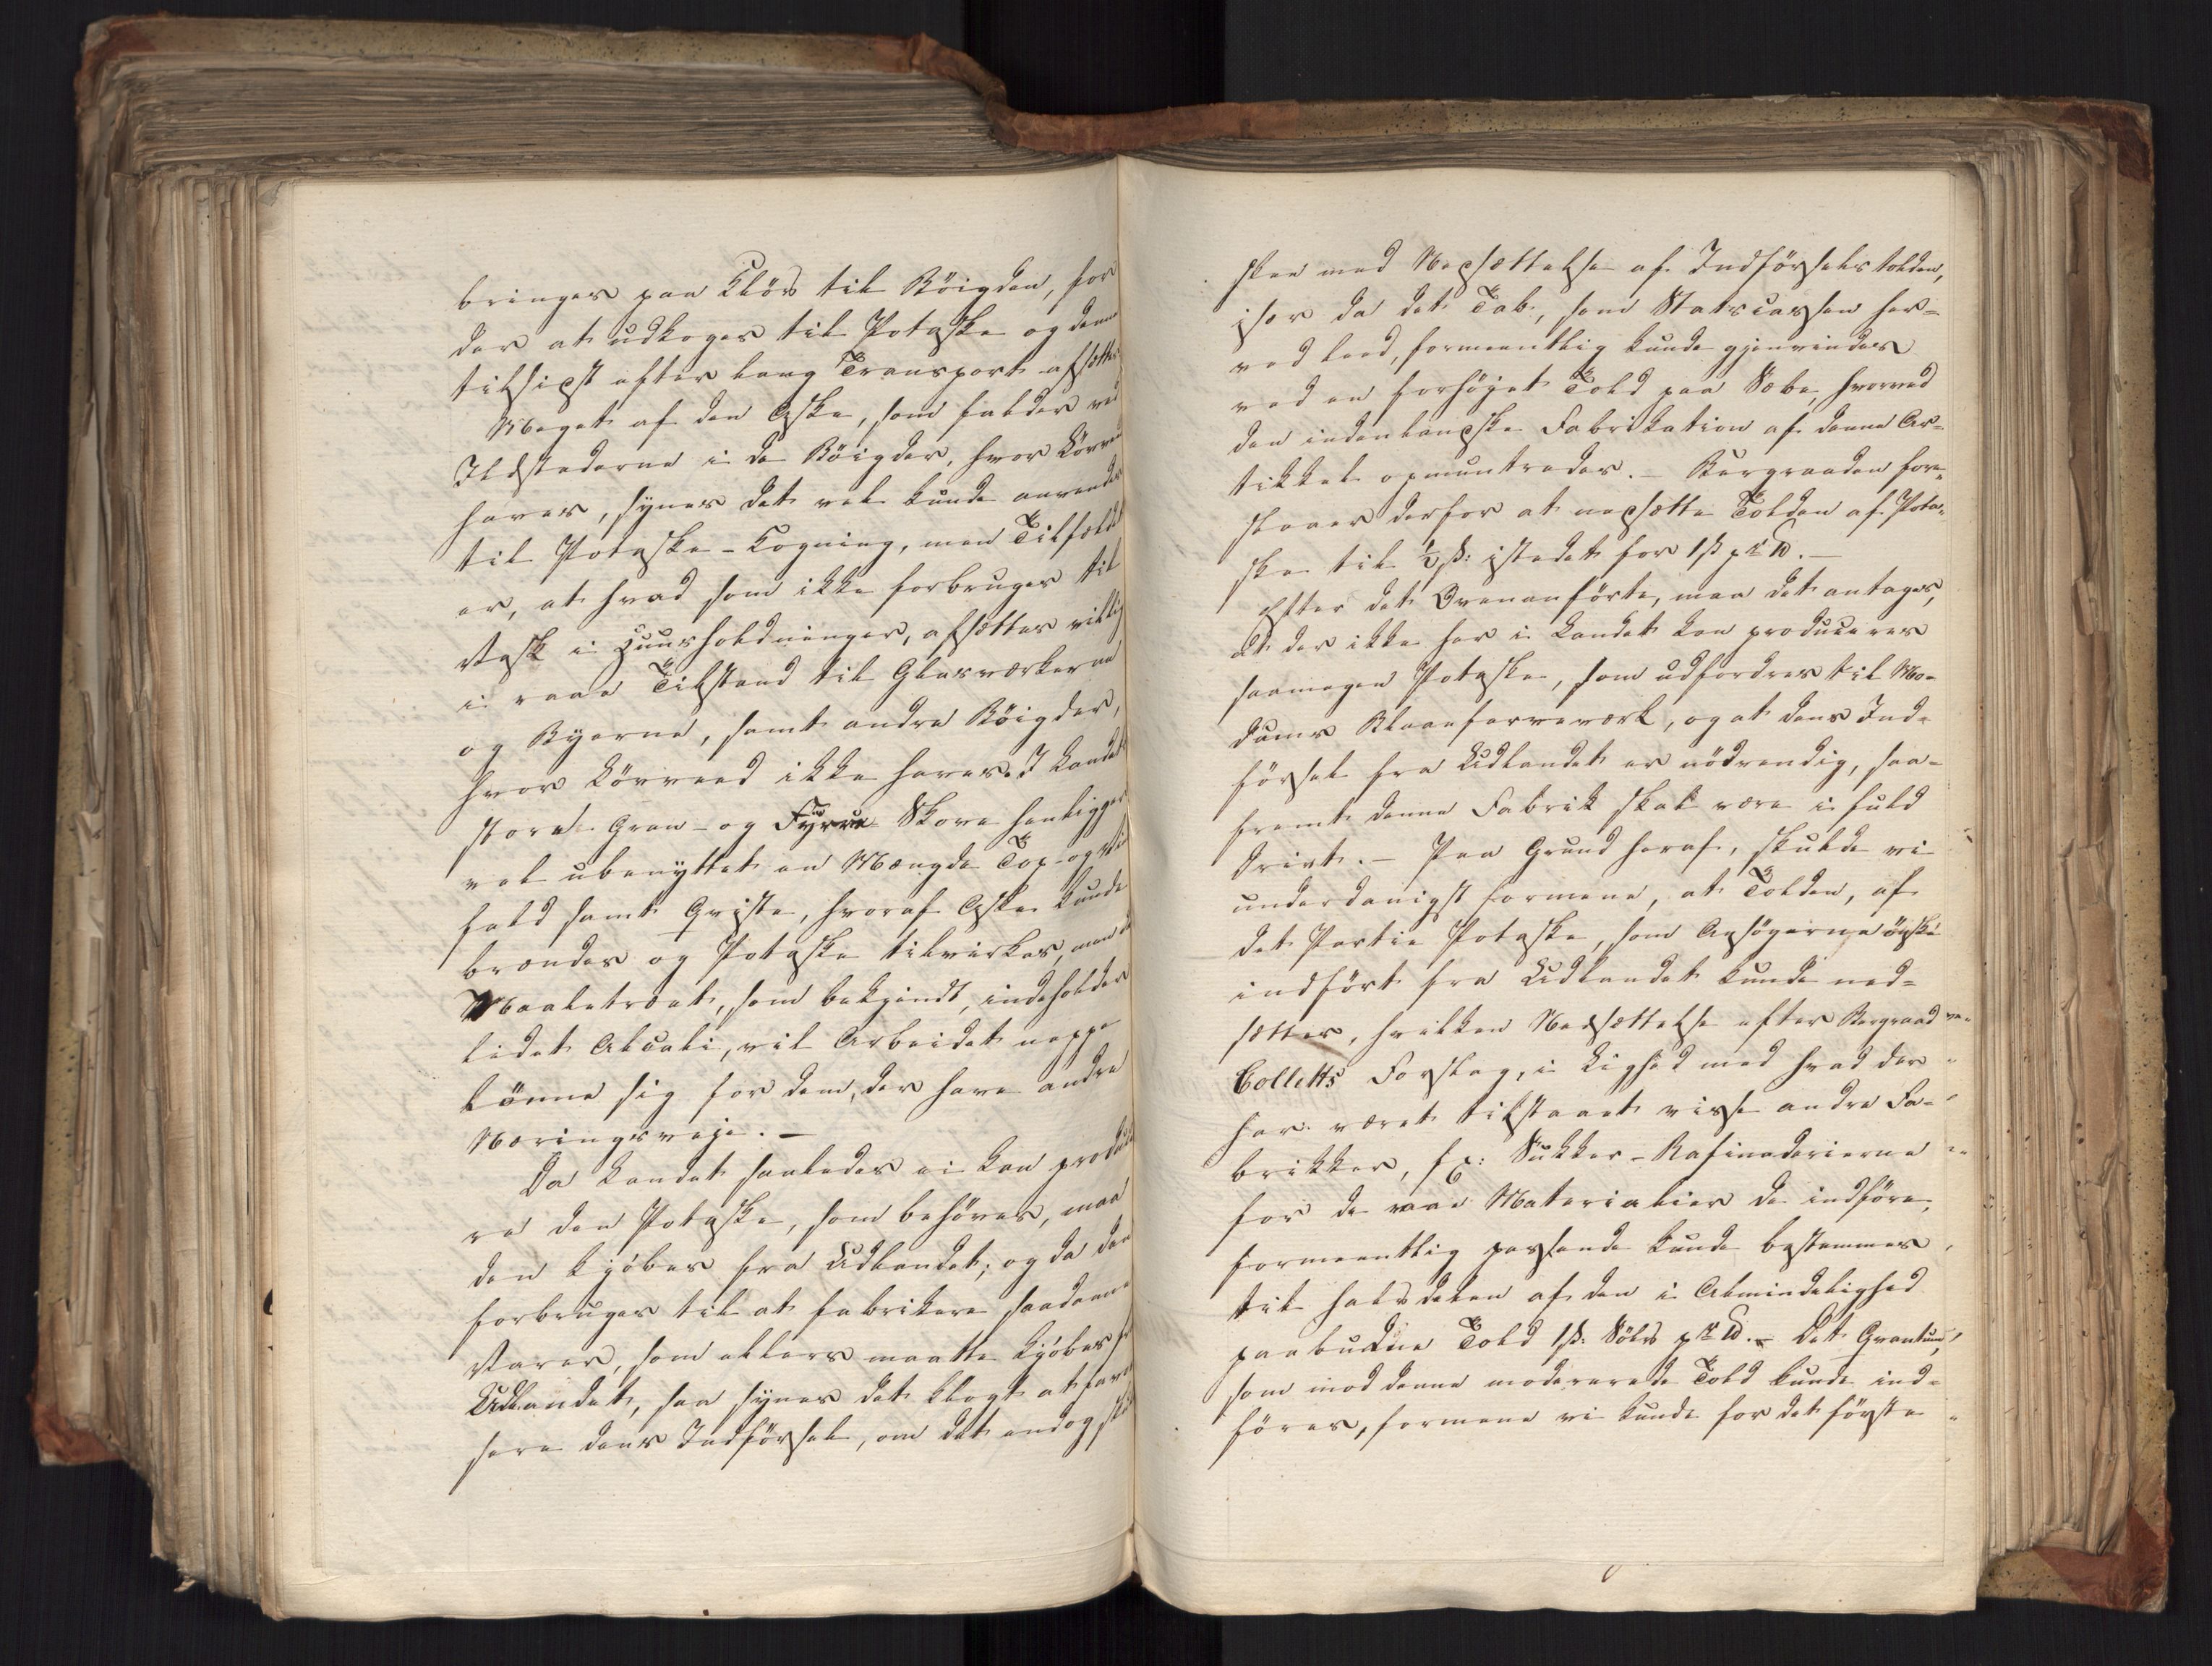 bringes paa Kløv til Böigden, for
der at udkoges til Potaske og denne
tilsidst efter lang Transport afsættes.
Meget af den Aske, som falder ved
Ildstederne i de Böigder, hvor Lövved
haves, synes det vel kunde anvendes
til Potaske-Kogning, men Tilfældet
er, at hvad som ikke forbruges til
Vask i Huusholdninger, afsættes villig
i raae Tilstand til Glasværkerne
og Byerne, samt andre Böigder,
hvor Lövved ikke haves. I Landets
store Gran- og Fyrre Skove henligger
vel ubenyttet en Mængde Top- og Vind
fald samt Qviste, hvoraf Aske kunde
brændes og Potaske tilvirkes, men da
Naaletræet, som bekjendt, indeholder
lidet Alcali, vil Arbeidet neppe
lönne sig for dem, der have andre
Næringsveje. —
Da Landet saaledes ei kan produce
re den Potaske, som behöves, maa
den kjöbes fra Udlandet; og da den
forbruges til at fabrikere saadanne
Varer, som ellers maatte kjöbes fra
Udlandet, saa synes det klogt at favori
sere dens Indförsel, om det endog skul
skee med Nedsættelse af Indförselstolden,
især da det Tab, som Statscassen her-
ved leed, formeentlig kunde gjenvindes
ved en forhöjet Told paa Sæbe, hvorved
den indenlandske Fabrikation af denne Ar-
tikkel opmuntredes. — Bergraaden fore-
slaaer derfor at nedsætte Tolden af Pota-
ske til ½ ß: istedet for 1 ß pr ℔. —
Efter det Ovenanförte, maa det antages,
at der ikke her i Landet kan produceres
saamegen Potaske, som udfordres til Mo-
dums Blaafarveværk, og at dens Ind-
försel fra Udlandet er nödvendig, saa-
fremt denne Fabrik skal være i fuld
Drivt. — Paa Grund heraf, skulde vi
underdanigst formene, at Tolden, af
det Partie Potaske, som Ansögerne önske
indfört fra Udlandet kunde ned-
sættes, hvilken Nedsættelse efter Bergraad
Colletts Forslag, i Lighed med hvad der
har været tilstaaet visse andre Fa-
brikker, f.Ex: Sukker-Rafinaderierne
for de raae Materialier de indföre,
formeentlig passende kunde bestemmes
til halvdelen af den i Almindelighed
paabudne Told 1 ß: Sölv pr ℔. — Det Qvantum,
som mod denne modererede Told kunde ind-
föres, formene vi kunde for det förste